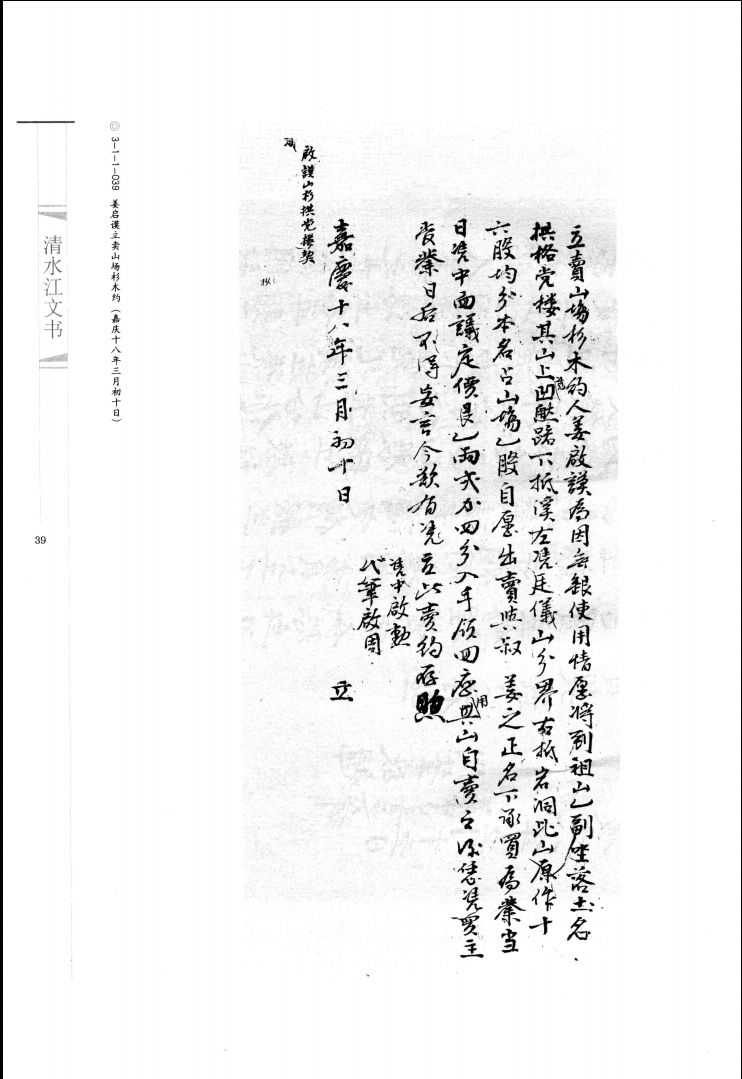 立賣山塲杉木約人姜啟謨為因無銀使用情愿將到祖山乙副坐落土名
拱格党楼其山上凴凹壓路下抵溪左凴廷儀山分界右抵岩洞此山原作十
六股均分本名占山塲乙股自愿出賣與叔 姜之正名下承買為業当
日凴中面議定價艮乙両弍分四分入手領回应用其山自賣之後恁凴買主
管業日后不得妄言今欲有凴立此賣約存照
凴中啟勲
代筆啟周
嘉慶十八年三月初十日 立
啟謨山杉拱党楼契
◎ 3-1-1-039 姜启谟立卖山场杉木约（嘉庆十八年三月初十日）
清水江文书
39